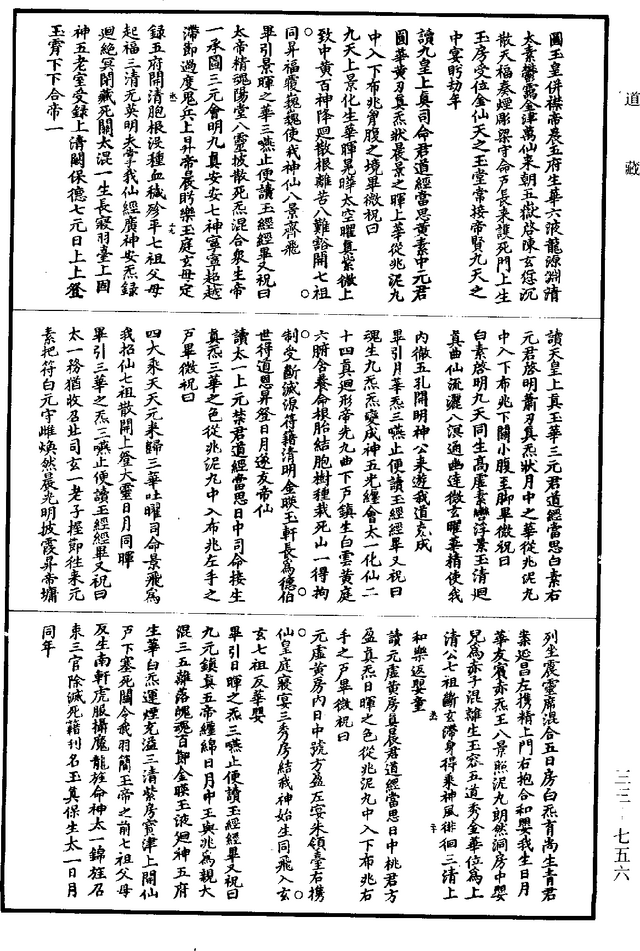 道藏
圖玉皇併襟帝晨五府生華六液龍源淵清
太素鬱靄金津萬仙来朝五嶽啓陳玄您沉
散天福奏煙彫梁守命戸長来護死門上生
玉房受位金仙天之玉堂常接帝賢九天之
中宴眄劫年
讀九皇上真司命君道經當思黄素中元君
圓華黄刃真炁狀晨景之暉上華從兆泥九
中入下布兆胷腹之境畢微祝曰
九天上景化生華暉晃曄太空曜真紫微上
致中黄百神降迴散根離苦八難豁開七祖
同昇福覆巍巍使我神仙八景齊飛
畢引景暉之華三嚥止便讀玉經經畢又祝曰
太帝精魂陽堂八靈披散死炁混合衆生帝
一承圖三元會明九真安安七神寧寧超越
滯即過度鬼兵上昇帝晨眄樂玉庭玄母定
録五府開清胞根没種血穢殄平七祖父母
起福三清元英明夫掌我仙經廣神安炁録
迴絶冥閉藏死關太混一生長寢羽臺上固
神五老室受録上清闕保德七元日上上登
玉霄下下合帝一
讀天皇上真玉華三元君道經當思白素右
元君啓明蕭刃真炁狀月中之華從兆泥九
中入下布兆下關小腹至脚畢微祝曰
白素啓明九天同生高虛素彎浮景玉清迴
真曲仙流灑八溟通幽達微玄曜華精使我
内徹五孔開明神公来遊我道克成
畢引月華炁三嚥止便讀玉經經畢又祝曰
魂生九炁炁變成神五光纏會太一化仙二
十四真迴形帝先九曲下戸鎮生白雲黄庭
六腑含養命根胎結胞樹種栽死山一得拘
制受斷滅源符籍清明金暎玉軒長爲德伯
世得道恩昇登日月遂友帝仙
讀太一上元禁君道經當思日中司命接生
真炁三華之色從兆泥九中入布兆左手之
戸畢微祝曰
四大乗天天元来歸三華吐曜司命景飛爲
我招仙七祖散開上登大靈日月同暉
畢引三華之炁三嚥止便讀玉經經畢又祝曰
太一務猶收召北司玄一老子握節往来元
素把符白元守雌煥然晨光明披霞昇帝墉
列坐震靈席混合五日房白炁育尚生青君
案延昌左携精上門右抱合和嬰我生日月
華友賓赤炁王八景照泥九朗然洞房中嬰
兒爲赤子混離生玉容五道秀金華位爲上
清公七祖斷玄滯身得乗神風徘徊三清上
和樂返嬰童
讀元虛黄房真晨君道經當思日中桃君方
盈真炁日暉之色從兆泥九中入下布兆右
手之戸畢微祝曰
元虛黄房内日中號方盈左宴朱領臺右携
仙皇庭寢宴三秀房結我神始生同飛入玄
玄七祖反華嬰
畢引日暉之炁三嚥止便讀玉經經畢又祝曰
九元鎮真五帝纏綿日月中王與兆爲親大
混三五離落魄魂百節金暎玉液迴神五府
生華白炁運煙充溢三清紫房寳津上開仙
戸下塞死關令我羽簡玉帝之前七祖父母
反生南軒虎服攝魔龍旌命神太一錦旌召
束三官除滅死籍刊名玉真保生太一日月
同年
三三·七五六